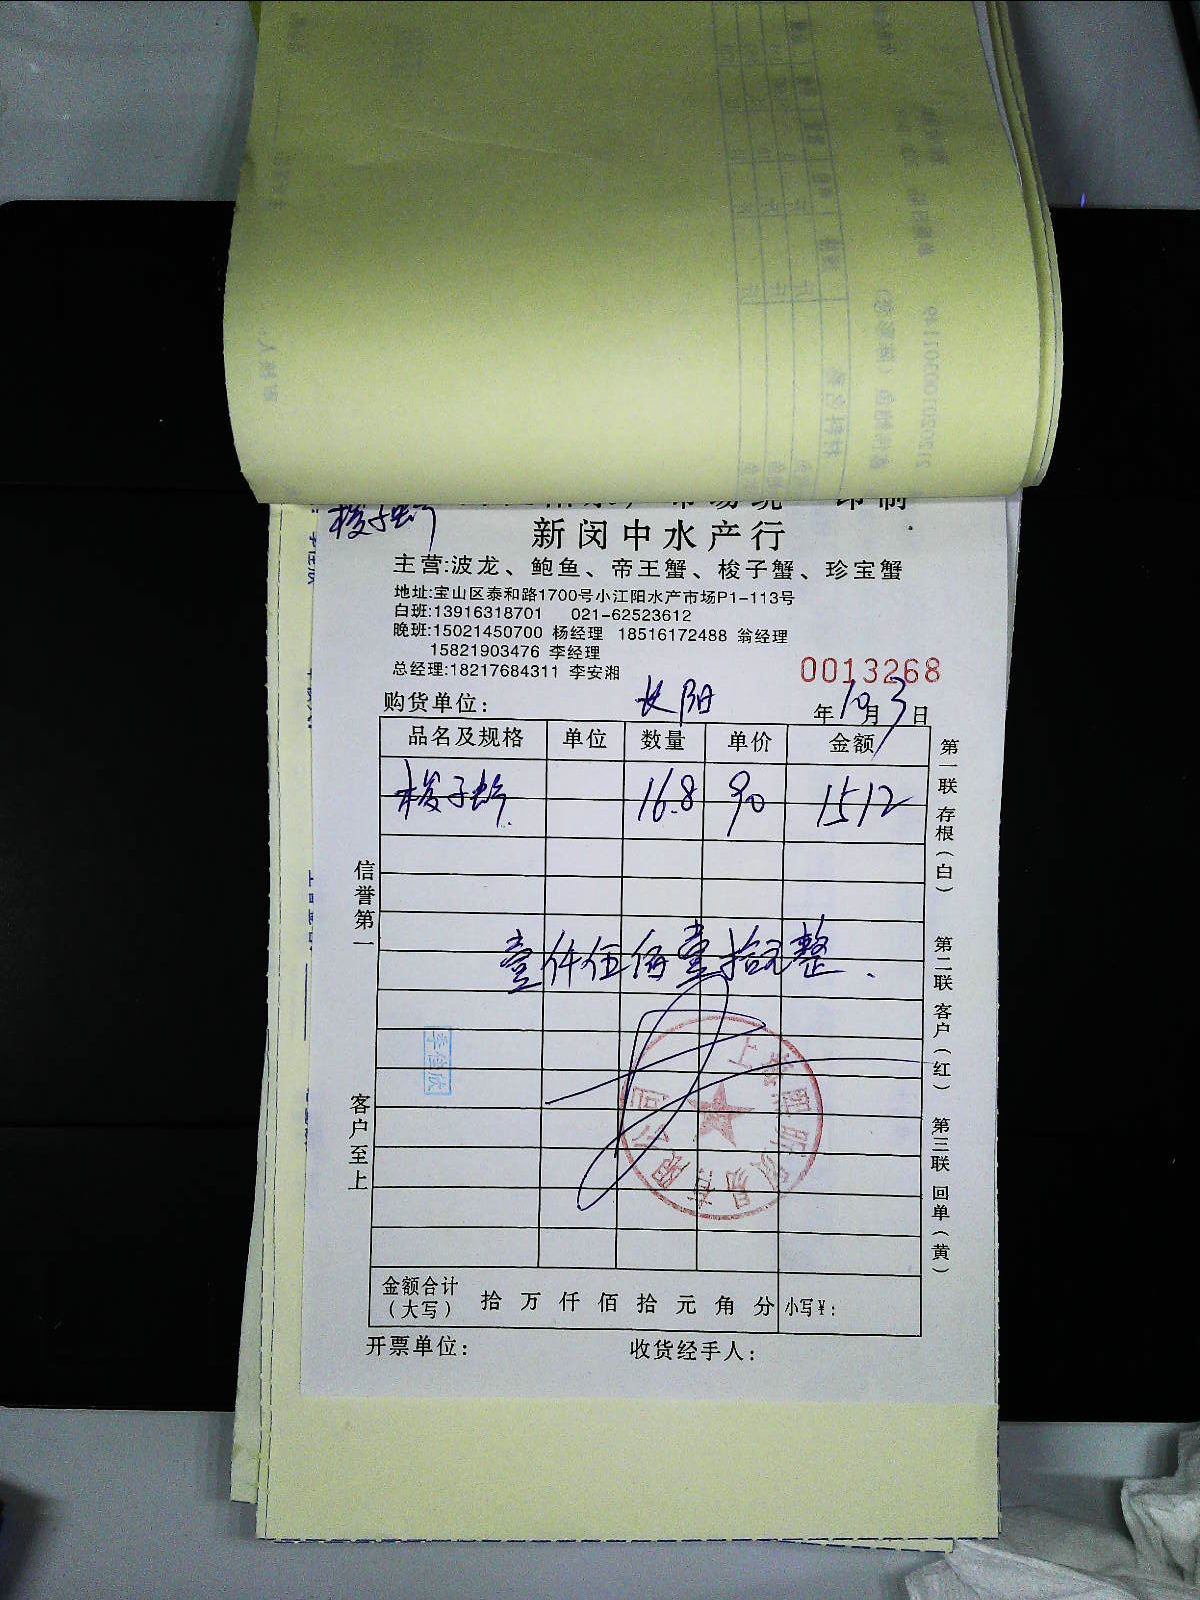 梭子蟹
新闵中水产行
主营:波龙、鲍鱼、帝王蟹、梭子蟹、珍宝蟹
地址:宝山区泰和路1700号小江阳水产市场P1-113号
白班:13916318701 021-62523612
晚班:15021450700 杨经理 18516172488 翁经理
15821903476 李经理
总经理:18217684311 李安湘
0013268
购货单位: 长阳 年10月3日
品名及规格 单位 数量 单价 金额
梭子蟹 16.8 90 1512
壹仟伍佰壹拾元整.
信誉第一
客户至上
李俊欣
金额合计(大写) 拾 万 仟 佰 拾 元 角 分 小写¥:
开票单位: 收货经手人:
第一联 存根(白)
第二联 客户(红)
第三联 回单(黄)